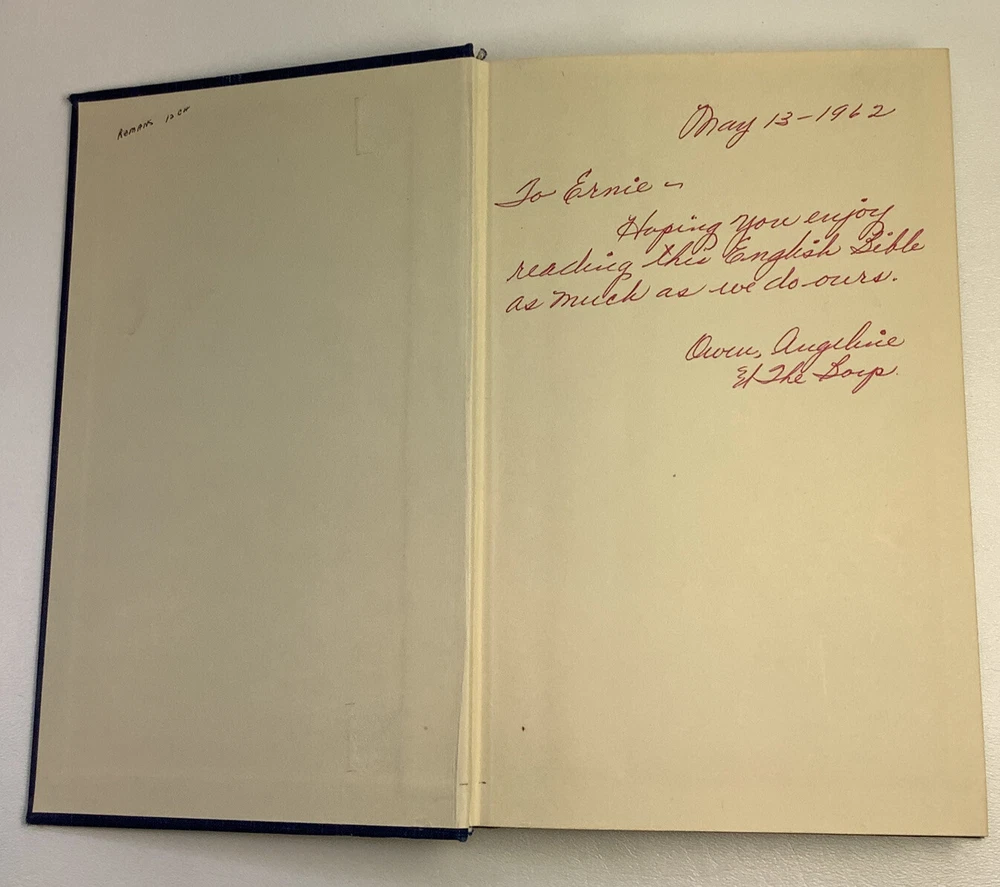 ROMANS 12 CH
May 13-1962
To Ernie ~
Hoping you enjoy
reading this English Bible
as much as we do ours.
Owen, Angeline
& The Boys.